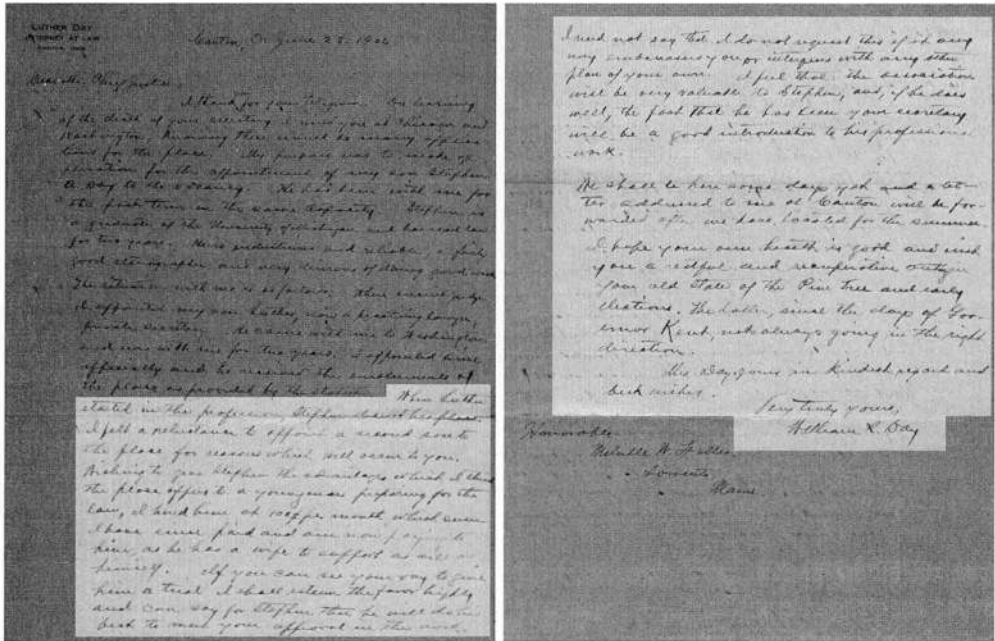 LUTHER DAY
ATTORNEY AT LAW
CANTON, OHIO
Canton, O. June 25. 1906
Dear Mr. Chief Justice,
I thank for your telegram. On learning
of the death of your secretary I wired you at Chicago and
Washington, knowing there would be many applica
tions for the place. My purpose was to make ap
plication for the appointment of my son Stephen
A Day to the vacancy. He has been with me for
the past term in the same capacity. Stephen is
a graduate of the University of Michigan and has read law
for two years. He is industrious and reliable, a fairly
good stenographer and very desirous of doing good work.
The situation with me is as follows: When circuit judge
I appointed my son Luther, now a practicing lawyer,
private secretary. He came with me to Washington
and was with me for two years. I appointed him
officially and he received the emoluments of
the place as provided by the statute. When Luther
started in the profession, Stephen took his place.
I felt a reluctance to appoint a second son to
the place for reasons which will occur to you.
Wishing to give Stephen the advantages which I think
the place offers to a young man preparing for the
law, I hired him at 100 per month, which sum
I have since paid and am now paying to
him, as he has a wife to support as well as
himself. If you can see your way to give
him a trial I shall esteem the favor highly
and can say for Stephen that he will do his
best to meet your approval in the work.
I need not say that I do not request this if it any
way embarrasses you or interferes with any other
plan of your own. I feel that the association
will be very valuable to Stephen, and, if he does
well, the fact that he has been your secretary
will be a good introduction to his professional
work.
We shall be here some days yet and a let-
ter addressed to me at Canton will be for-
warded after we have located for the summer.
I hope your own health is good and wish
you a restful and recuperative outing in
your old State of the Pine tree and early
elections. The latter, since the days of Gov-
ernor Kent, not always going in the right
direction.
Mrs Day joins in kindest regard and
best wishes.
Very truly yours,
William R. Day
Honorable
Melville W. Fuller
Sorrento
Maine